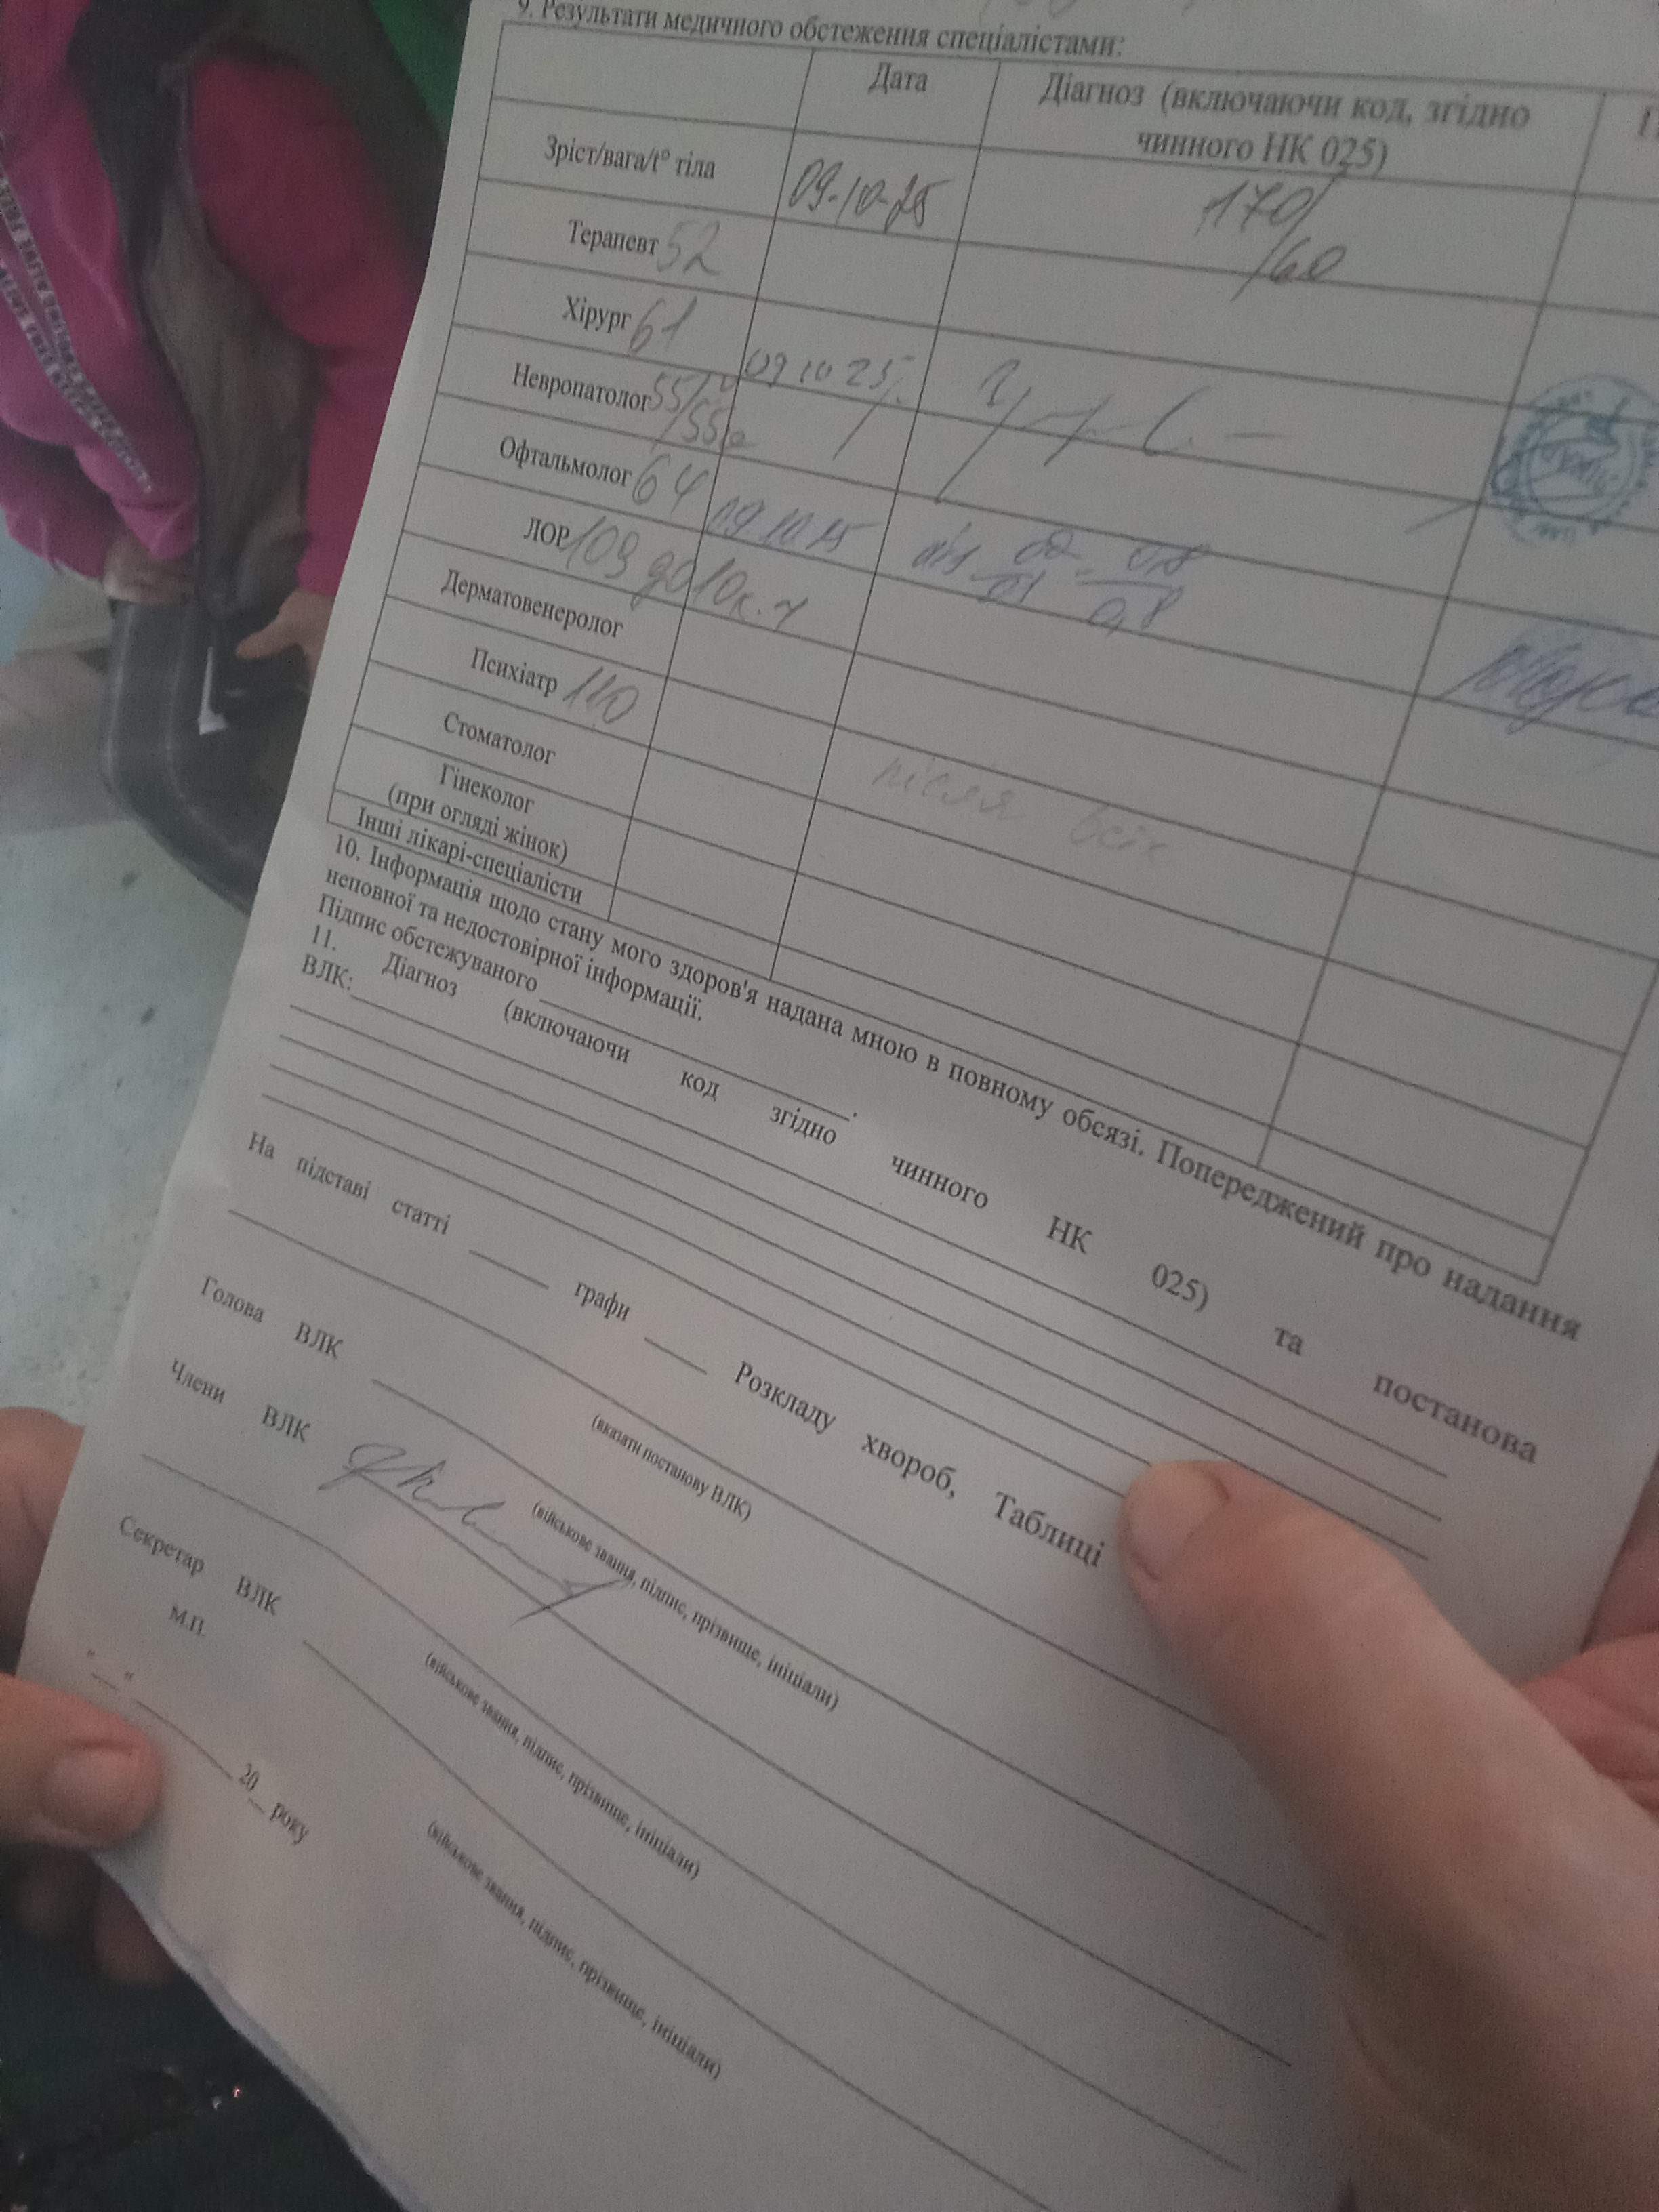 9. Результати медичного обстеження спеціалістами:
Дата
Діагноз (включаючи код, згідно
чинного НК 025)
Зріст/вага/t° тіла
09.10.25
170/60
Терапевт 52
Хірург 61
Невропатолог 55/
/55а
09 10 25
Офтальмолог 64
09.10.25
0,8
ЛОР 109 до 10 к. ч
Дерматовенеролог
Психіатр 110
після всіх
Стоматолог
Гінеколог
(при огляді жінок)
Інші лікарі-спеціалісти
10. Інформація щодо стану мого здоров'я надана мною в повному обсязі. Попереджений про надання
неповної та недостовірної інформації.
Підпис обстежуваного
11. Діагноз (включаючи код згідно чинного НК 025) та постанова
ВЛК:
На підставі статті графи Розкладу хвороб, Таблиці
(вказати постанову ВЛК)
Голова ВЛК
(військове звання, підпис, прізвище, ініціали)
Члени ВЛК
(військове звання, підпис, прізвище, ініціали)
Секретар ВЛК
(військове звання, підпис, прізвище, ініціали)
М.П.
"__" ______ 20__ року